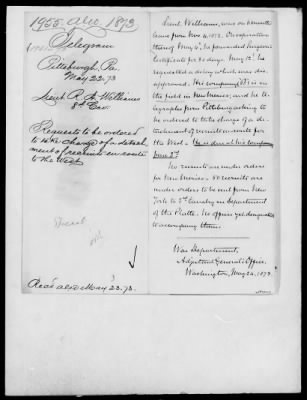 1955 ACP 1873
Telegram
Pittsburgh, Pa.
May 22. 73
Lieut R. A. Williams
8" Cav.
Requests to be ordered
to take charge of a detach-
ment of recruits en route
to the West
Rec'd May 23. 73.
Lieut. Williams, was on 6 months
leave from Nov.
he forwarded Surgeon's
certificate for 20 days. May 12" he
requested a delay which was dis-
approved. His company is in
the field in New Mexico, and he te-
legraphs from Pittsburg asking to
be ordered to take charge of a de-
tachment of recruits en route for
the West. He is due at his company
June 3d
No recruits are under orders
for New Mexico. recruits
are under orders to be sent from New
York to 3d Cavalry in Department
of the Platte. No officer yet designated
to accompany them.
War Department,
Adjutant General's Office,
Washington, May 24, 1873.